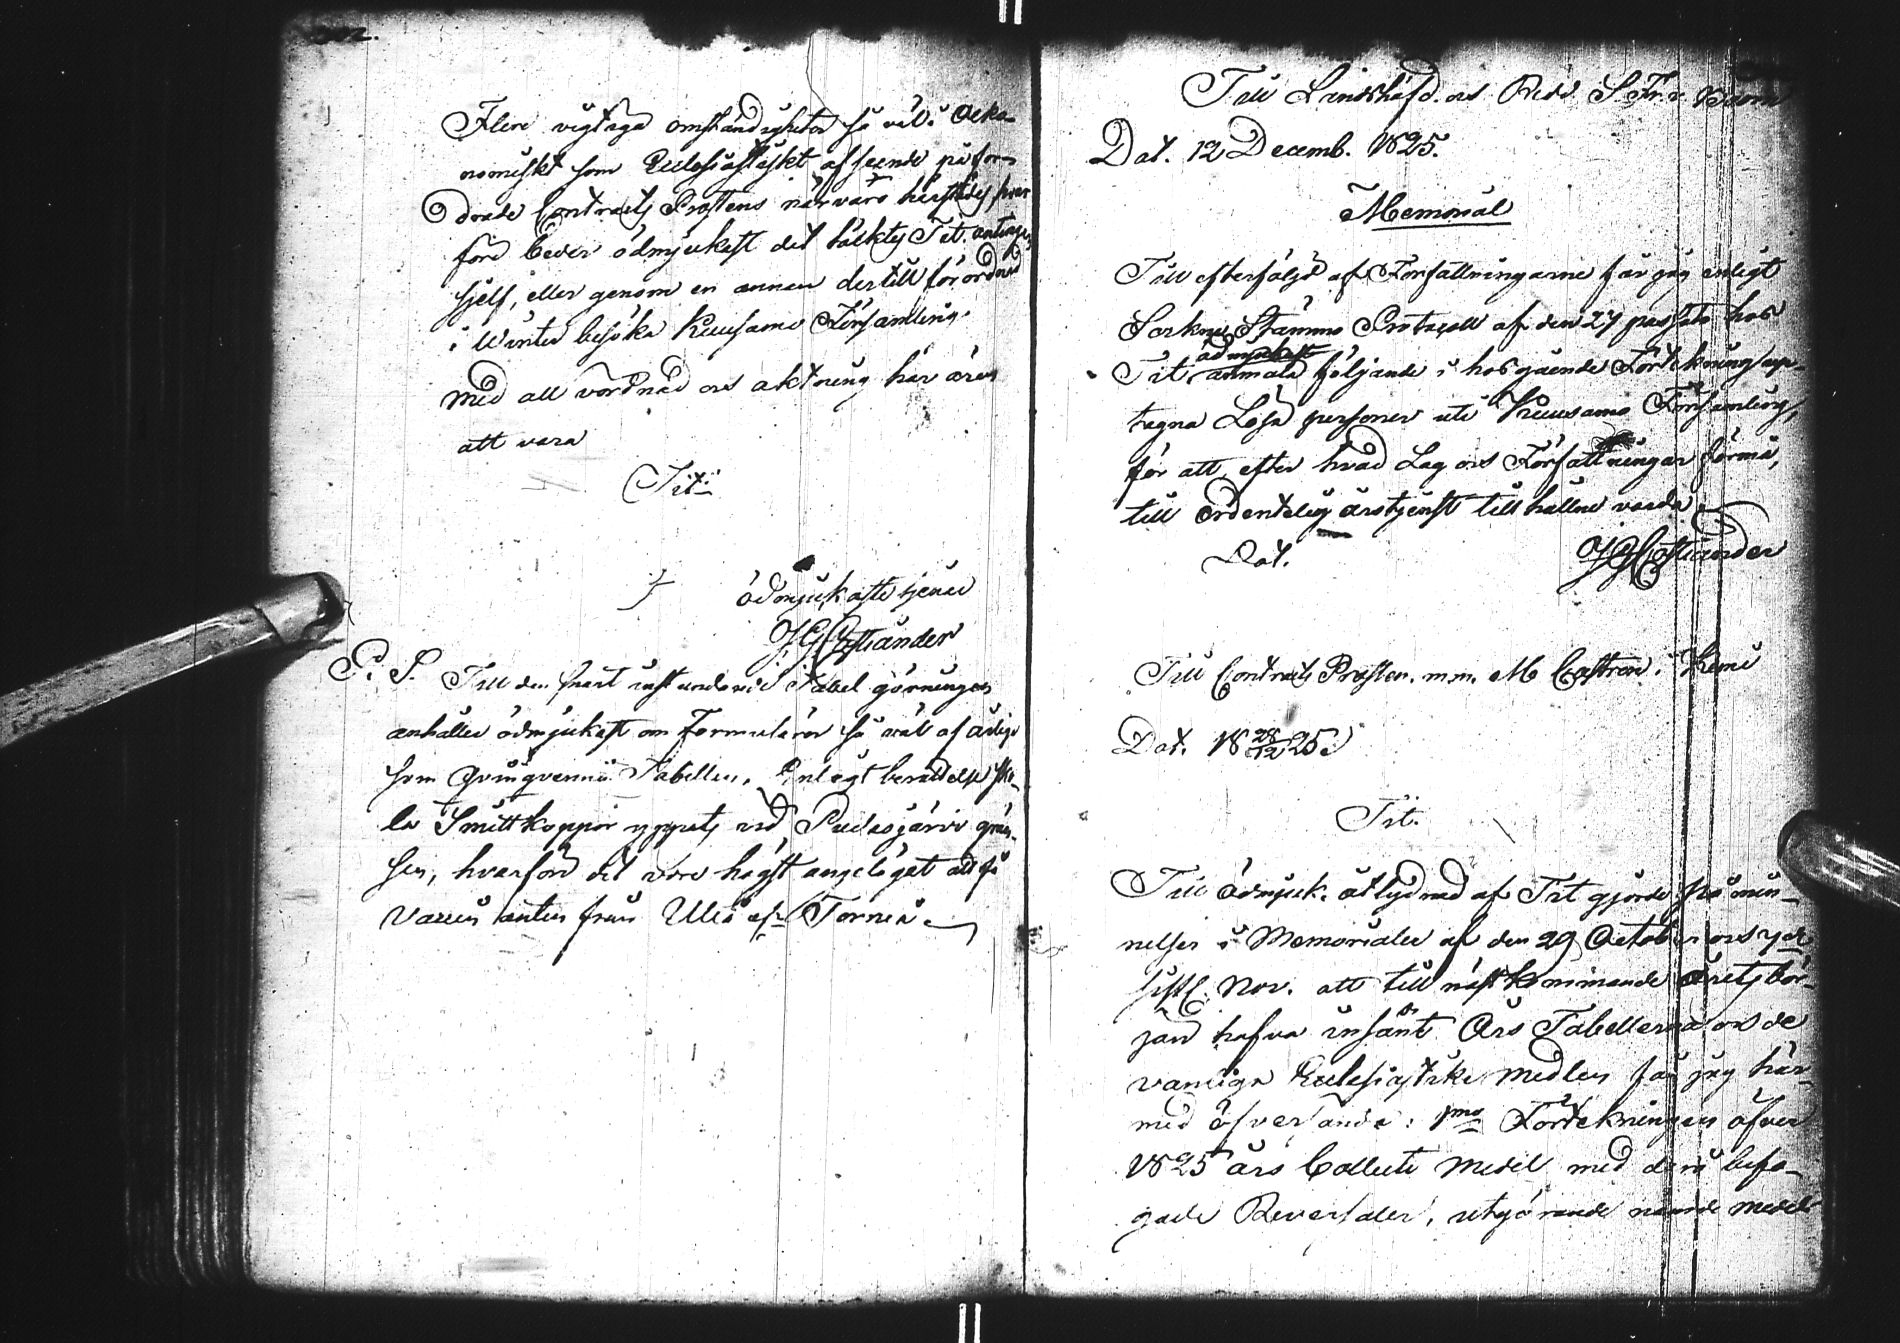 Flere vigtiga omständigheter så väl i Oeko-
nomiskt som Ecclesiastiskt afseende påfor-
drade Contracts Prostens närvaro härstädes hvar
före beder ödmjukast det täcktes Tit. antingen
sjelf, eller genom en annan dertill förordnad
i winter besöka Kuusamo Församling.
Med all vördnad och aktning har äran
att vara
Tit:
ödmjukaste tjenare
J G Castiander
P. S. Till den snart inst undvi Tabel görningen
anhåller ödmjukast om Formulärer så väl af årlige
som qvinqvennii Tabellen. Enligt berättelse sko-
la Smittkoppor yppats vid Pudasjärvi grän-
sen, hvarföre det vore högst angelägit att få
Vaccin anten från Uleå el. Torneå.
Till Lindshöfd. och Ridd. S. Fr. v. Born
Dat. 12 Decemb. 1825.
Memorial
Till efterföljd af Författningarne får jag enligt
Sockne Stämmo Protocoll af den 27 passato hos
ödmjukast
Tit. anmäla följande i hosgående Förtekning up-
tagna Lösa personer uti Kuusamo Församling,
för att efter hvad Lag och Författningar förmå,
till ordentelig årstjenst tillhållne varda.
Dat. J G Castiander
Till Contracts Prosten m.m. M Castren i Kemi
Dat. 18 28/12 25.
Tit.
Till ödmjuk. åtlydnad af Tit gjorde påmin-
nelser i Memorialer af den 29 October och 7de
sistl. Nov. att till nästkommande årets bör-
jan hafva insänt Års Tabellerna och de
vanliga Ecclesiastike Medlen får jag här-
med öfversända: 1mo Förtekningen öfver
1825 års Collect Medel med derå bifo-
gade Reversaler, utgörande nämde medel